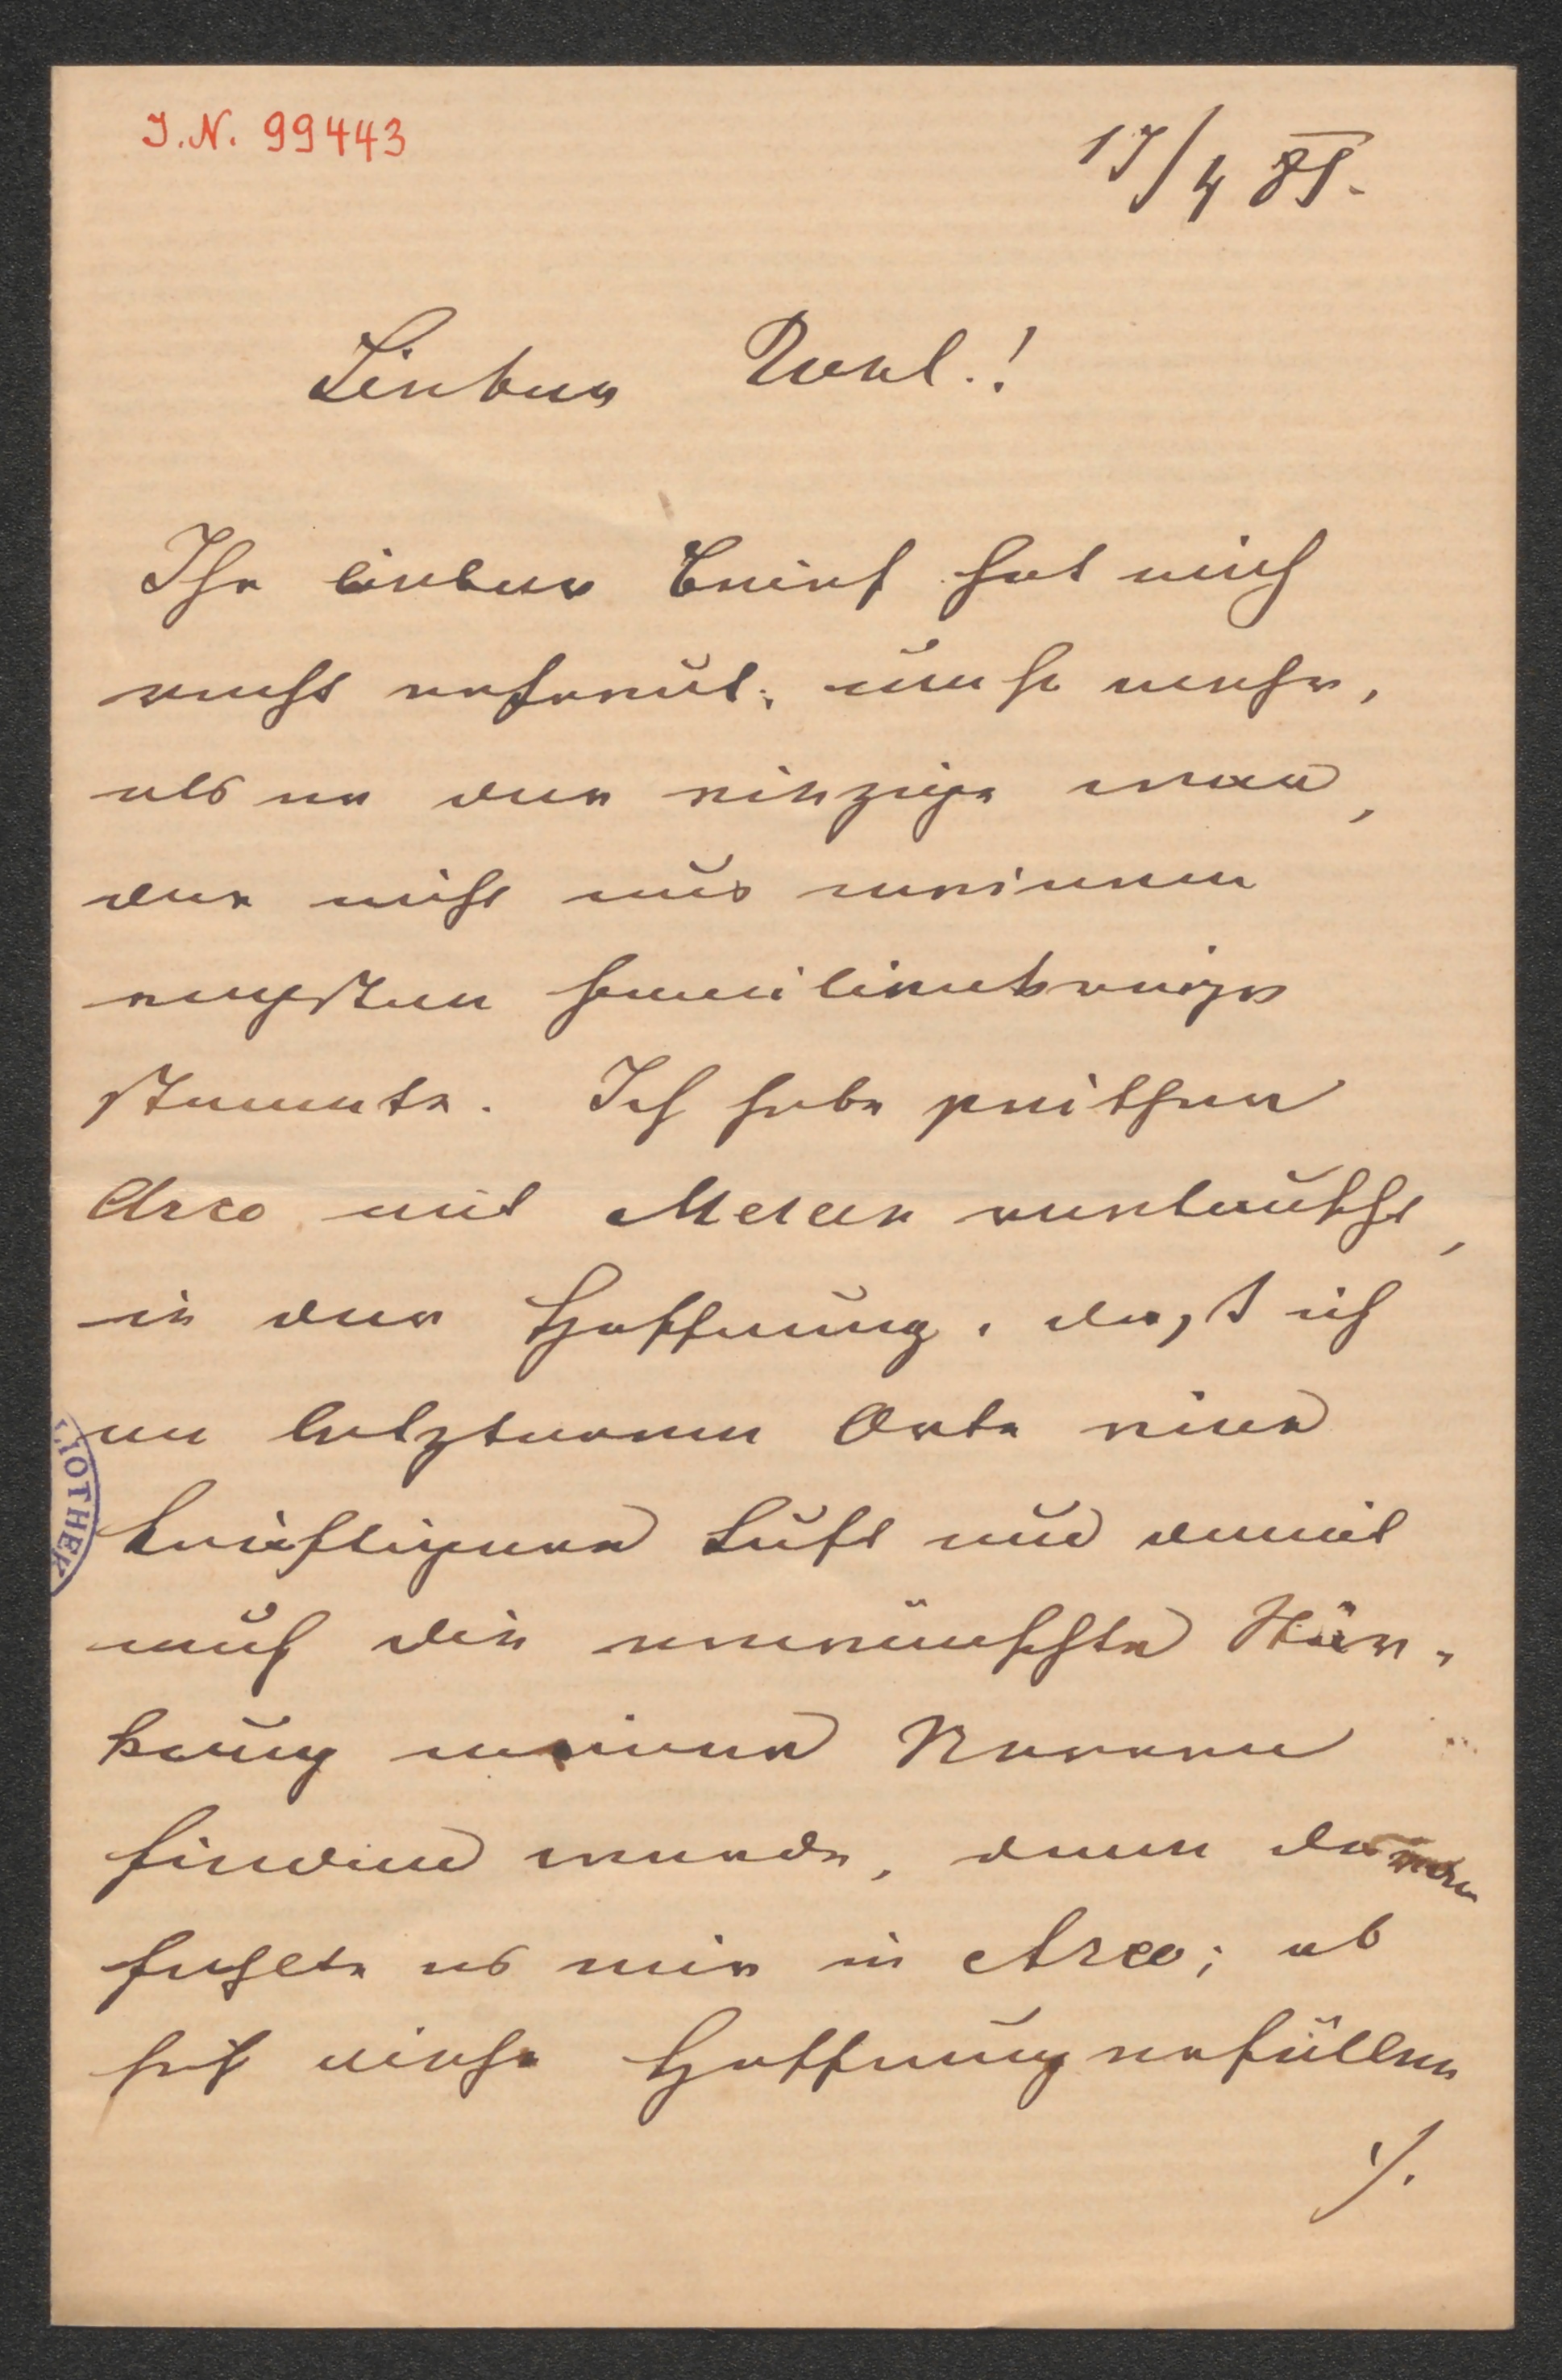 I.N. 99443
17/4 81.
Lieber !
Ihr lieber Brief hat mich
recht erfreut, um so mehr,
als er der einzige war,
der nicht aus meinem
engsten Familienkreise
stammte. Ich habe seither
Arco mit Meran vertauscht,
in der Hoffnung, dass ich
an letzterem Orte eine
kräftigere Luft und damit
auch die erwünschte Stär-
kung meiner Nerven
finden werde, denn daran
fehlte es mir in Arco; ob
sich diese Hoffnung erfüllen
./.
LIOTHEK